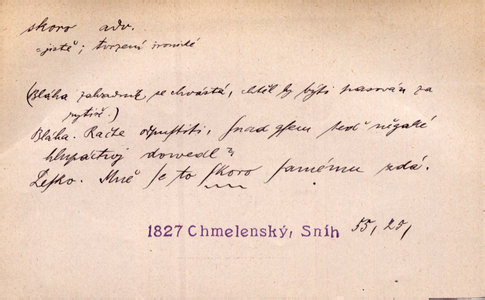 skoro adv.
jistě; tvrzení ironické
(Bláha zahradník se chvástá, chtěl by býti pasován za
rytíře.)
Bláha. Račte odpustiti, snad gsem teď něgaké
hlupáctwj dowedl?
Lesko. Mně se to skoro samému zdá.
1827 Chmelenský, Sníh 55, 20,